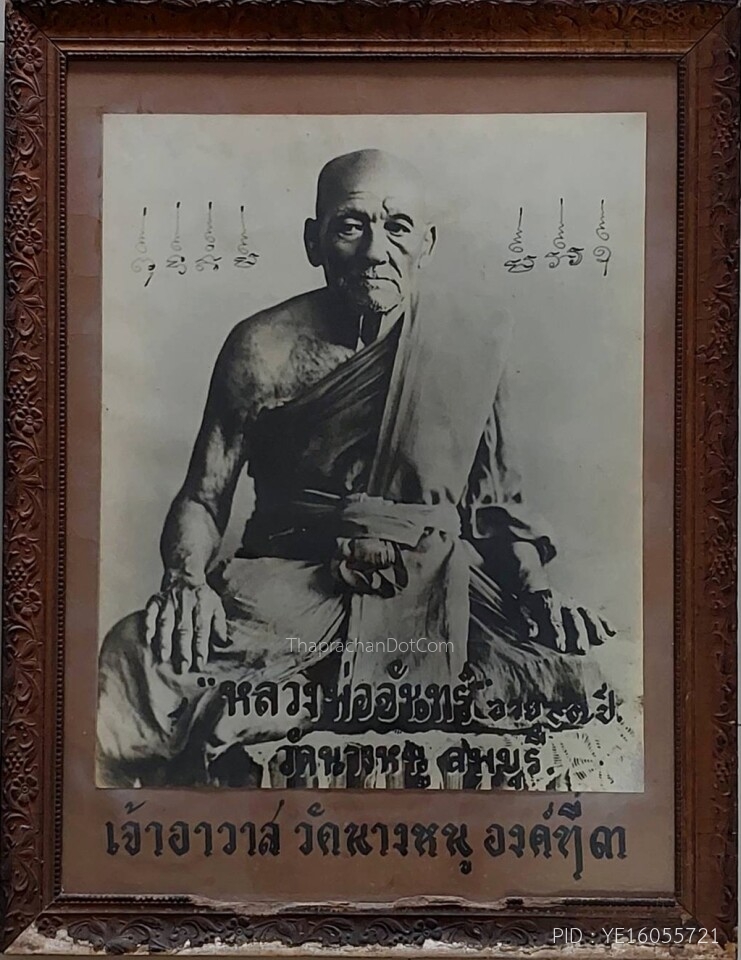 ThaprachanDotCom
"หลวงพ่อจันทร์" อายุ ๙๓ ปี.
วัดนางหนู ลพบุรี.
เจ้าอาวาส วัดนางหนู องค์ที่ ๓
PID : YE16055721